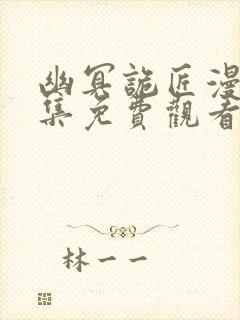 幽冥詭匠漫
集免費觀看
林一一